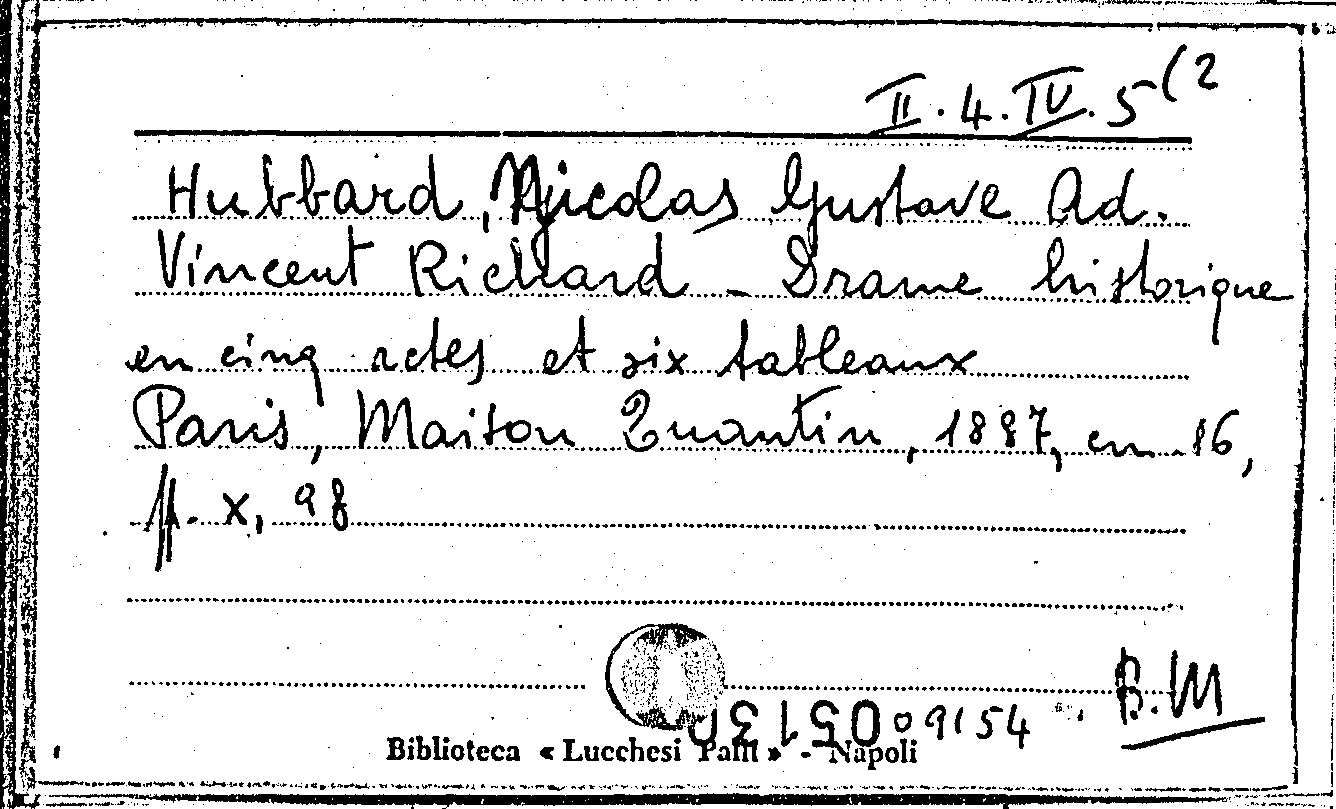 II. 4. IV. 5 (2
Hubbard, Nicolas Gustave Ad.
Vincent Richard - Drame historique
en cinq actes et six tableaux
Paris, Maison Quantin, 1887, en 16,
pp. x, 98
B.M
009154
Biblioteca « Lucchesi Palli » - Napoli